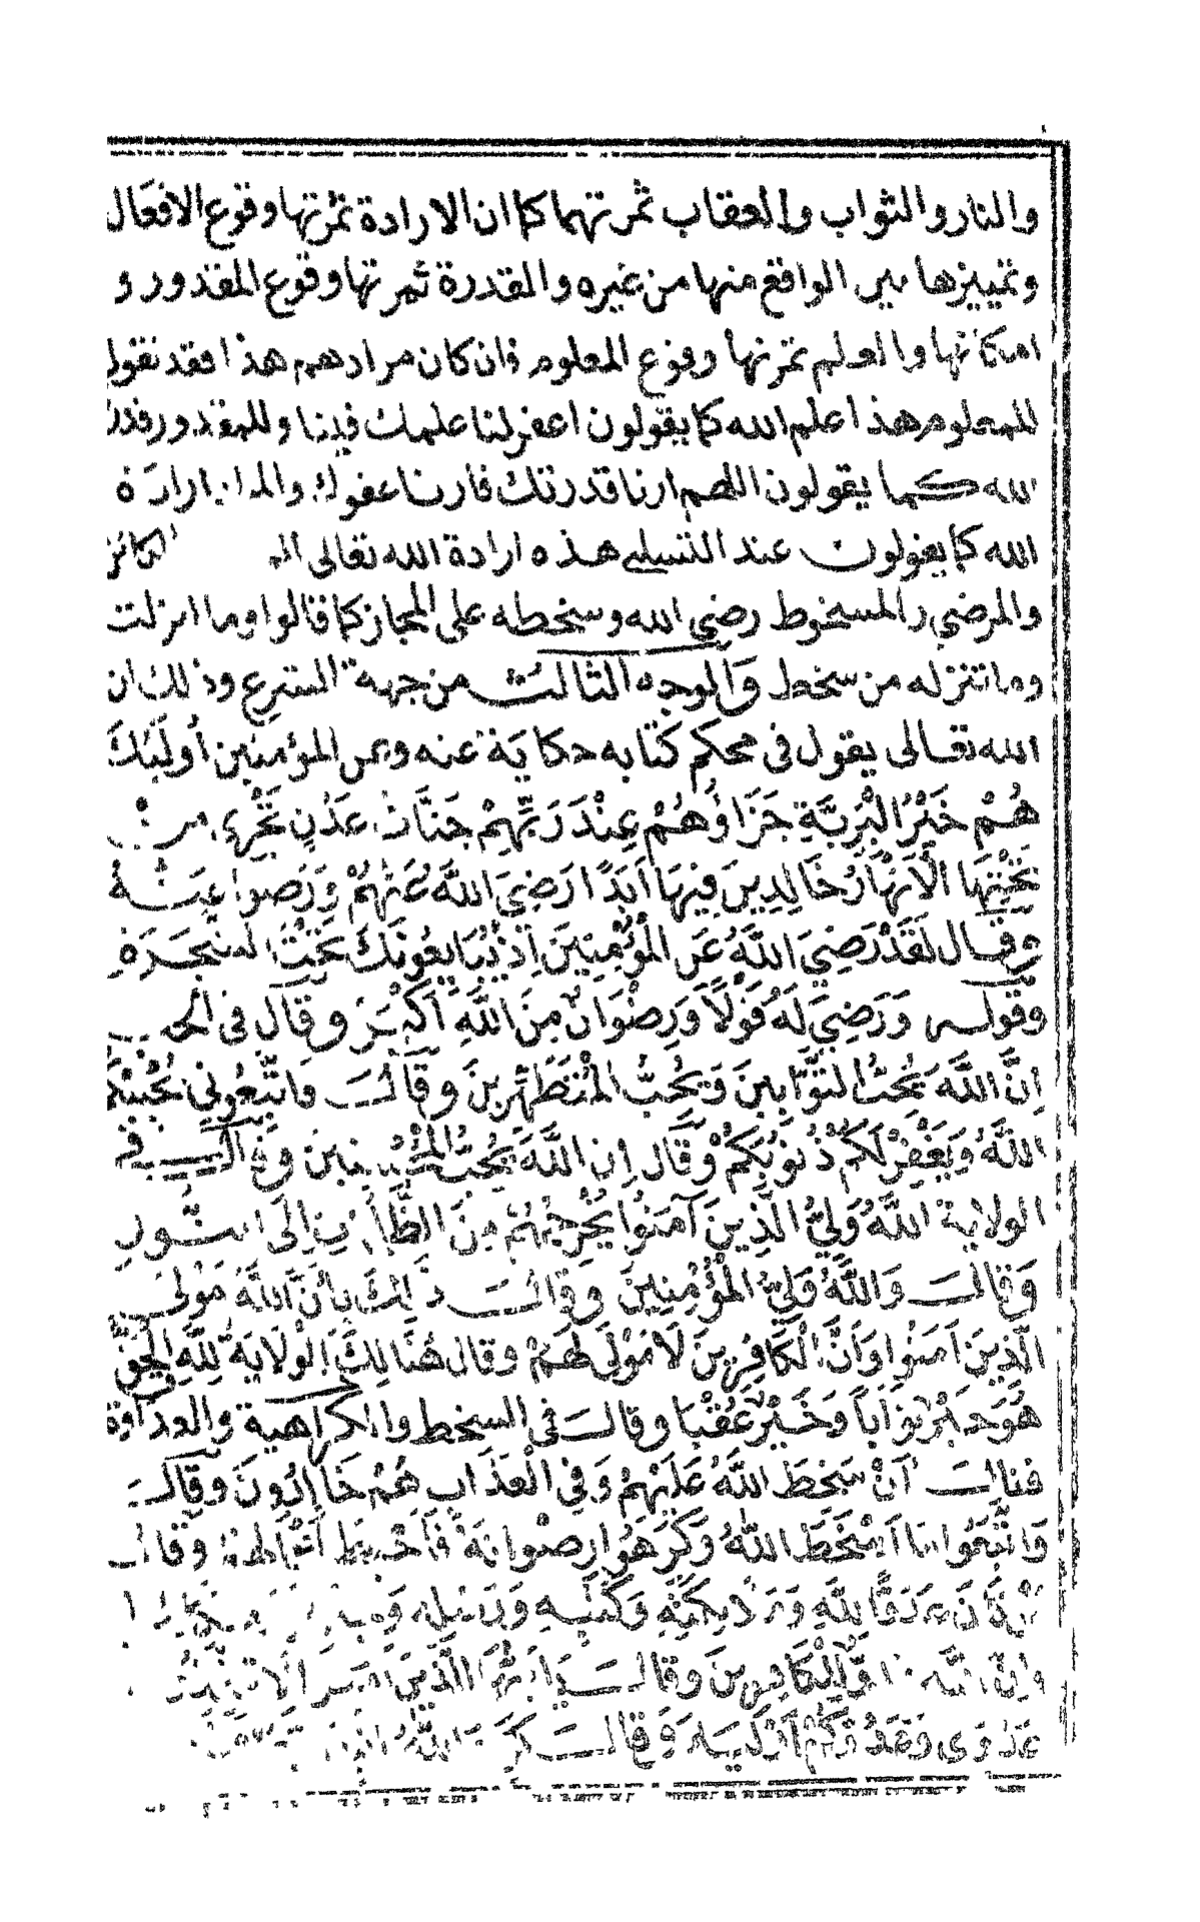 والنار والثواب والعقاب ثمرتهما كما ان الارادة ثمرتها وقوع الافعال
وتمييزها بين الواقع منها من غيره والمقدرة ثمرتها وقوع المقدور و
امكانها والعلم ثمرتها وقوع المعلوم فان كان مرادهم هذا فقد نقول
للمعلوم هذا علم الله كما يقولون اغفر لنا علمك فينا وللمقدور قدرة
الله كما يقولون اللهم ارنا قدرتك فارنا عفوك ارادة
الله كما يقولون عند التسلي هذه ارادة الله تعالى
والمرضي والمسخوط رضي الله وسخطه على المجاز كما قالوا وما انزلت
وما تنزله من سخط والوجه الثالث من جهة الشرع وذلك ان
الله تعالى يقول في محكم كتابه حكاية عنه وعن المؤمنين أُولَئِكَ
هُمْ خَيْرُ الْبَرِيَّةِ جَزَاؤُهُمْ عِنْدَ رَبِّهِمْ جَنَّاتُ عَدْنٍ تَجْرِي مِنْ
تَحْتِهَا الْأَنْهَارُ خَالِدِينَ فِيهَا أَبَدًا رَضِيَ اللَّهُ عَنْهُمْ وَرَضُوا عَنْهُ
وقال لَقَدْ رَضِيَ اللَّهُ عَنِ الْمُؤْمِنِينَ إِذْ يُبَايِعُونَكَ تَحْتَ الشَّجَرَةِ
وقوله وَرَضِيَ لَهُ قَوْلًا وَرِضْوَانٌ مِنَ اللَّهِ أَكْبَرُ وقال في الحب
إِنَّ اللَّهَ يُحِبُّ التَّوَّابِينَ وَيُحِبُّ الْمُتَطَهِّرِينَ وقال فَاتَّبِعُونِي يُحْبِبْكُمُ
اللَّهُ وَيَغْفِرْ لَكُمْ ذُنُوبَكُمْ وقال إِنَّ اللَّهَ يُحِبُّ الْمُحْسِنِينَ وقال في
الولاية اللَّهُ وَلِيُّ الَّذِينَ آمَنُوا يُخْرِجُهُمْ مِنَ الظُّلُمَاتِ إِلَى النُّورِ
وقال وَاللَّهُ وَلِيُّ الْمُؤْمِنِينَ وقال ذَلِكَ بِأَنَّ اللَّهَ مَوْلَى
الَّذِينَ آمَنُوا وَأَنَّ الْكَافِرِينَ لَا مَوْلَى لَهُمْ وقال هُنَالِكَ الْوَلَايَةُ لِلَّهِ الْحَقِّ
هُوَ خَيْرٌ ثَوَابًا وَخَيْرٌ عُقْبًا وقال في السخط والكراهية والعداوة
فقال أَنْ سَخِطَ اللَّهُ عَلَيْهِمْ وَفِي الْعَذَابِ هُمْ خَالِدُونَ وقال
وَاتَّبَعُوا مَا أَسْخَطَ اللَّهَ وَكَرِهُوا رِضْوَانَهُ فَأَحْبَطَ أَعْمَالَهُمْ وقال
كَانَ عَدُوًّا لِلَّهِ وَمَلَائِكَتِهِ وَكُتُبِهِ وَرُسُلِهِ
فَإِنَّ اللَّهَ عَدُوٌّ لِلْكَافِرِينَ وقال يَا أَيُّهَا الَّذِينَ آمَنُوا لَا تَتَّخِذُوا
عَدُوِّي وَعَدُوَّكُمْ أَوْلِيَاءَ وقال كَرِهَ اللَّهُ